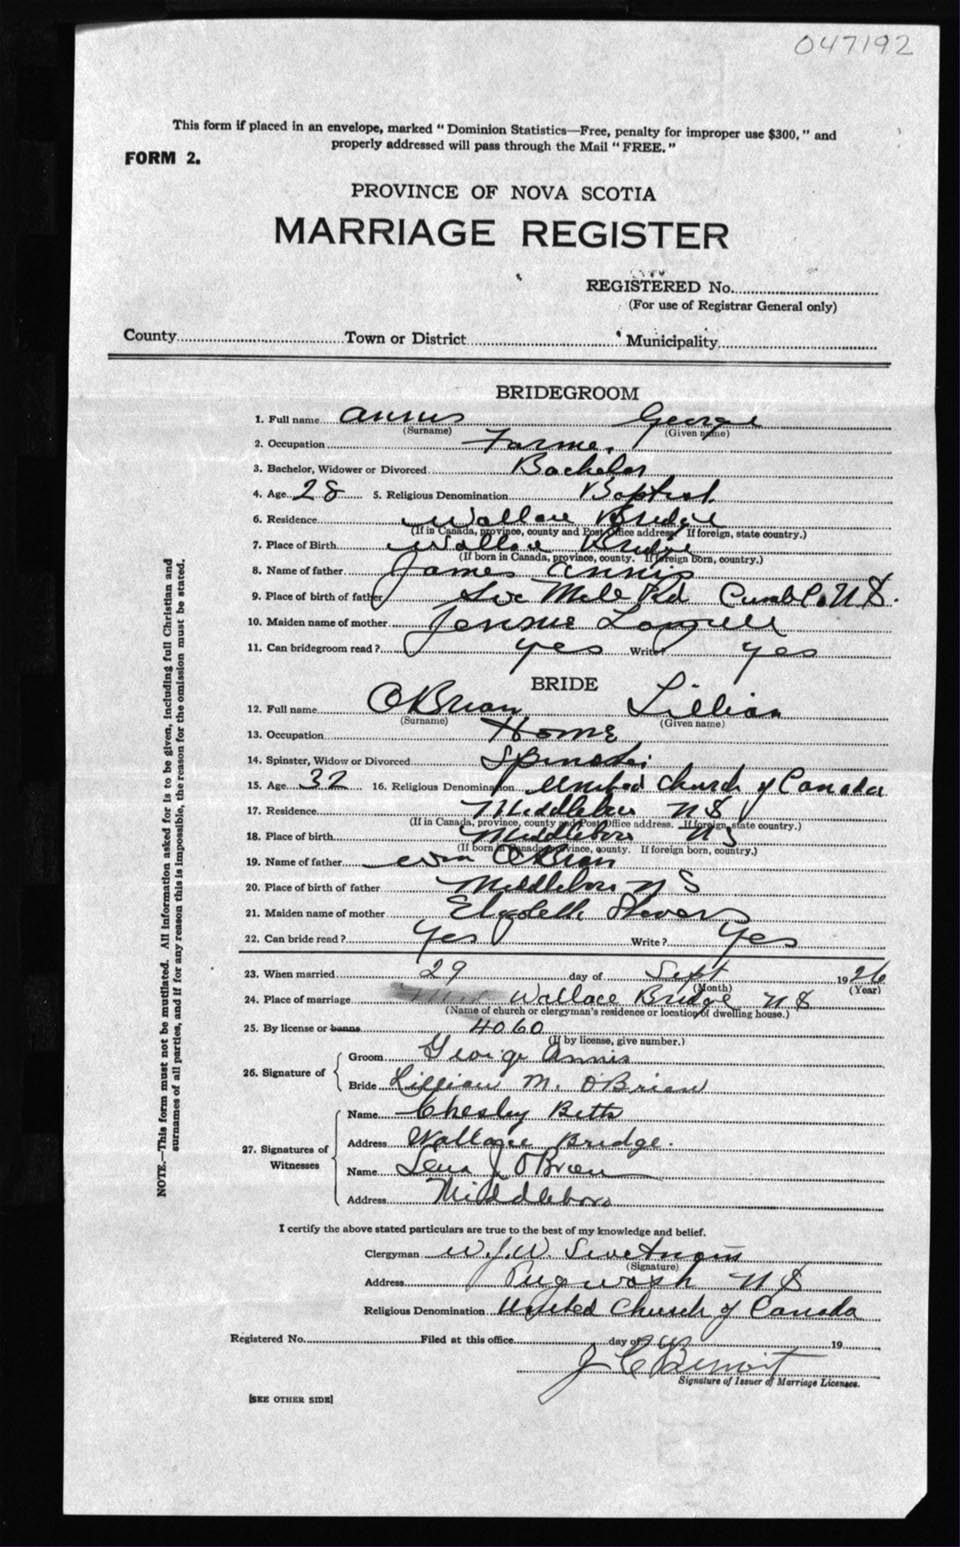 047192
This form if placed in an envelope, marked " Dominion Statistics—Free, penalty for improper use $300, " and
properly addressed will pass through the Mail " FREE. "
FORM 2.
PROVINCE OF NOVA SCOTIA
MARRIAGE REGISTER
REGISTERED No.
(For use of Registrar General only)
County Town or District Municipality
BRIDEGROOM
1. Full name Annis George
(Surname) (Given name)
2. Occupation Farmer
3. Bachelor, Widower or Divorced Bachelor
4. Age 28 5. Religious Denomination Baptist
6. Residence Wallace Bridge
(If in Canada, province, county and Post Office address. If foreign, state country.)
7. Place of Birth Wallace Bridge
(If born in Canada, province, county. If foreign born, country.)
8. Name of father James Annis
9. Place of birth of father Six Mile Rd Cumb Co N S.
10. Maiden name of mother
11. Can bridegroom read ? yes Write? yes
BRIDE
12. Full name OBrian Lillian
(Surname) (Given name)
13. Occupation Home
14. Spinster, Widow or Divorced Spinster
15. Age 32 16. Religious Denomination United Church of Canada
17. Residence Middleboro N S
(If in Canada, province, county and Post Office address. If foreign, state country.)
18. Place of birth Middleboro N S
(If born in Canada, province, county. If foreign born, country.)
19. Name of father Wm OBrian
20. Place of birth of father Middleboro N S
21. Maiden name of mother Elizabeth Stevens
22. Can bride read ? Yes Write ? Yes
23. When married 29 day of Sept 1926
(Month) (Year)
24. Place of marriage Wallace Bridge N S
(Name of church or clergyman's residence or location of dwelling house.)
25. By license or banns 4060
(If by license, give number.)
26. Signature of
Groom George Annis
Bride Lillian M. O'Brian
27. Signatures of Witnesses
Name Chesley Betts
Address Wallace Bridge.
Name Lena J OBrien
Address Middleboro
I certify the above stated particulars are true to the best of my knowledge and belief.
Clergyman W. J. W. Swetnam
(Signature)
Address Pugwash N S
Religious Denomination United Church of Canada
Registered No. Filed at this office day of 19
J C Benoit
Signature of Issuer of Marriage Licenses.
[SEE OTHER SIDE]
NOTE.—This form must not be mutilated. All information asked for is to be given, including full Christian and
surnames of all parties, and if for any reason this is impossible, the reason for the omission must be stated.